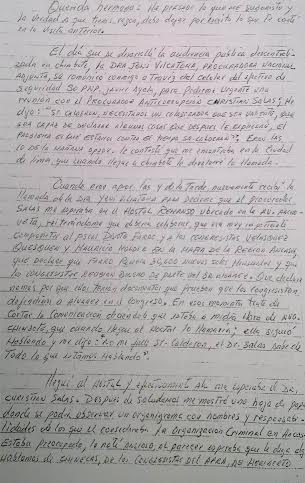 Querido hermano: He pensado lo que me sugeriste y la
verdad es que tienes razón, debo dejar por escrito lo que te conté
en la visita anterior.
El día que se desarrolló la audiencia pública descentrali-
zada en Chimbote, la DRA. YENI VILCATOMA, PROCURADORA NACIONAL
ADJUNTA, se comunicó conmigo a través del celular del efectivo de
seguridad SO PNP. Javier Ayala, para pedirme urgente una
reunión con el PROCURADOR ANTICORRUPCIÓN CHRISTIAN SALAS; me
dijo: "SR. CALDERON, NECESITAMOS UN COLABORADOR QUE SEA VALIENTE, QUE
SEA CAPAZ DE DECLARAR ALGUNAS COSAS QUE DESPUÉS LE EXPLICARÉ, EL
PROBLEMA ES QUE ESTAMOS CONTRA EL TIEMPO ¿SE COLABORA?". Eran las
10 de la mañana aprox. le contesté que me encontraba en la ciudad
de Lima, que cuando llegue a Chimbote le devolvería la llamada.
Cuando eran aprox. las 4 de la tarde nuevamente recibí la
llamada de la DRA. YENI VILCATOMA para decirme que el procurador
SALAS me esperaba en el HOSTAL REMANSO ubicado en la AV.
me
comprometer al fiscal DANTE FARRO y a los CONGRESISTAS VELASQUEZ
QUESQUEN y MAURICIO MULDER en la MAFIA de CESAR ALVAREZ,
que declare que FARRO RECIBIA 30,000 nuevos soles mensuales y que
los CONGRESISTAS RECIBIAN DINERO DE PARTE DEL
nomas por que ellos tenían documentos que prueban que los congresistas
defendían a ALVAREZ en el Congreso. En esos momentos traté de
cortar la comunicación diciendole que estaba a media hora de NVO.
CHIMBOTE, que cuando llegue al HOSTAL lo llamaría; ella siguió
Hablando y me dijo: No me falle SR. Calderon, el DR. Salas sabe de
todo lo que estamos Hablando".
Llegué al HOSTAL y efectivamente ahí me esperaba el DR.
CHRISTIAN SALAS. Después de saludarnos me mostró una hoja de papel
donde se podía observar un organigrama con nombres y responsabi-
lidades de los que él consideraba la organización criminal en Ancash
Estaba preocupado, lo noté ansioso, al parecer esperaba que le diga algo
Hablamos de CHINECAS, de los CONGRESISTAS DEL APRA, DE